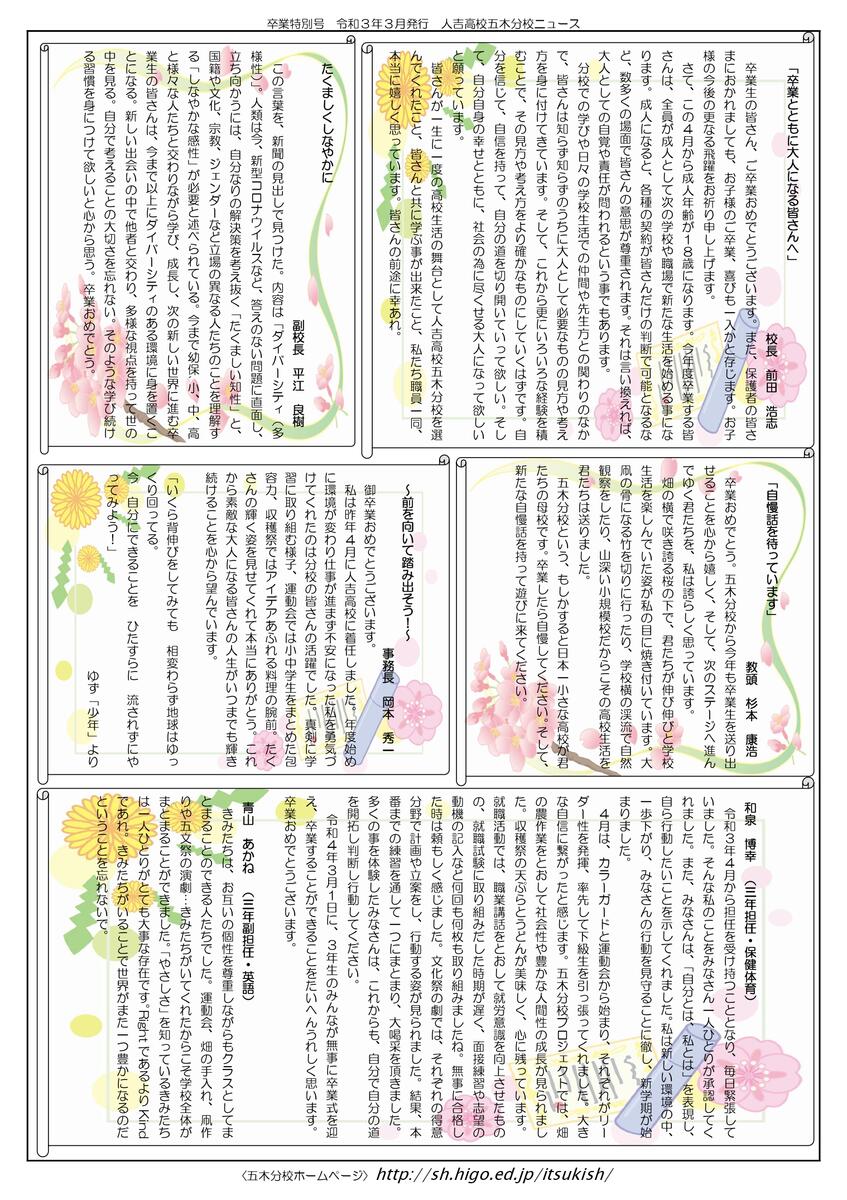 卒業特別号　令和３年３月発行　人吉高校五木分校ニュース
「卒業とともに大人になる皆さんへ」
校長　前田　浩志
　卒業生の皆さん、ご卒業おめでとうございます。また、保護者の皆さ
まにおかれましても、お子様のご卒業、喜びも一入かと存じます。お子
様の今後の更なる飛躍をお祈り申し上げます。
　さて、この４月から成人年齢が１８歳になります。今年度卒業する皆
さんは、全員が成人として次の学校や職場で新たな生活を始める事にな
ります。成人になると、各種の契約が皆さんだけの判断で可能となるな
ど、数多くの場面で皆さんの意思が尊重されます。それは言い換えれば、
大人としての自覚や責任が問われるという事でもあります。
　分校での学びや日々の学校生活での仲間や先生方との関わりのなか
で、皆さんは知らず知らずのうちに大人として必要なものの見方や考え
方を身に付けてきています。そして、これから更にいろいろな経験を積
むことで、その見方や考え方をより確かなものにしていくはずです。自
分を信じて、自信を持って、自分の道を切り開いていって欲しい。そし
て、自分自身の幸せとともに、社会の為に尽くせる大人になって欲しい
と願っています。
　皆さんが一生に一度の高校生活の舞台として人吉高校五木分校を選
んでくれたこと、皆さんと共に学ぶ事が出来たこと、私たち職員一同、
本当に嬉しく思っています。皆さんの前途に幸あれ。
たくましくしなやかに
副校長　平江　良樹
　この言葉を、新聞の見出しで見つけた。内容は「ダイバーシティ（多
様性）。人類は今、新型コロナウイルスなど、答えのない問題に直面し、
立ち向かうには、自分なりの解決策を考え抜く「たくましい知性」と、
国籍や文化、宗教、ジェンダーなど立場の異なる人たちのことを理解す
る「しなやかな感性」が必要と述べられている。今まで幼保・小、中、高
と様々な人たちと交わりながら学び、成長し、次の新しい世界に進む卒
業生の皆さんは、今まで以上にダイバーシティのある環境に身を置くこ
とになる。新しい出会いの中で他者と交わり、多様な視点を持って世の
中を見る。自分で考えることの大切さを忘れない。そのような学び続け
る習慣を身につけて欲しいと心から思う。卒業おめでとう。
「自慢話を待っています」
教頭　杉本　康浩
　卒業おめでとう。五木分校から今年も卒業生を送り出
せることを心から嬉しく、そして、次のステージへ進ん
でゆく君たちを、私は誇らしく思っています。
　畑の横で咲き誇る桜の下で、君たちが伸び伸びと学校
生活を楽しんでいた姿が私の目に焼き付いています。大
凧の骨になる竹を切りに行ったり、学校横の渓流で自然
観察をしたり、山深い小規模校だからこその高校生活を
君たちは送りました。
　五木分校という、もしかすると日本一小さな高校が君
たちの母校です。卒業したら自慢してください。そして、
新たな自慢話を持って遊びに来てください。
～前を向いて踏み出そう！～
事務長　岡本　秀一
　御卒業おめでとうございます。
　私は昨年４月に人吉高校に着任しました。年度始め
に環境が変わり仕事が進まず不安になった私を勇気づ
けてくれたのは分校の皆さんの活躍でした。真剣に学
習に取り組む様子、運動会では小中学生をまとめた包
容力、収穫祭ではアイデアあふれる料理の腕前。たく
さんの輝く姿を見せてくれて本当にありがとう。これ
から素敵な大人になる皆さんの人生がいつまでも輝き
続けることを心から望んでいます。
「いくら背伸びをしてみても　相変わらず地球はゆっ
くり回ってる。
今　自分にできることを　ひたすらに　流されずにや
ってみよう！」
ゆず「少年」より
和泉　博幸　（三年担任・保健体育）
　令和３年４月から担任を受け持つこととなり、毎日緊張して
いました。そんな私のことをみなさん一人ひとりが承認してく
れました。また、みなさんは、「自分とは、私とは」を表現し、
自ら行動したいことを示してくれました。私は新しい環境の中、
一歩下がり、みなさんの行動を見守ることに徹し、新学期が始
まりました。
　４月は、カラーガードと運動会から始まり、それぞれがリー
ダー性を発揮、率先して下級生を引っ張ってくれました。大き
な自信に繋がったと感じます。五木分校プロジェクトでは、畑
の農作業をとおして社会性や豊かな人間性の成長が見られまし
た。収穫祭の天ぷらとうどんが美味しく、心に残っています。
就職活動では、職業講話をとおして就労意識を向上させたもの
の、就職試験に取り組みだした時期が遅く、面接練習や志望の
動機の記入など何回も何枚も取り組みましたね。無事に合格し
た時は頼もしく感じました。文化祭の劇では、それぞれの得意
分野で計画や立案をし、行動する姿が見られました。結果、本
番までの練習を通して一つにまとまり、大喝采を頂きました。
多くの事を体験したみなさんは、これからも、自分で自分の道
を開拓し判断し行動してください。
　令和４年３月１日に、３年生のみんなが無事に卒業式を迎
え、卒業することができることをたいへんうれしく思います。
卒業おめでとうございます。
青山　あかね　（三年副担任・英語）
　きみたちは、お互いの個性を尊重しながらもクラスとしてま
とまることのできる人たちでした。運動会、畑の手入れ、凧作
りや五文祭の演劇…きみたちがいてくれたからこそ学校全体が
まとまることができました。「やさしさ」を知っているきみたち
は一人ひとりがとても大事な存在です。RightであるよりKind
であれ。きみたちがいることで世界がまた一つ豊かになるのだ
ということを忘れないで。
〈五木分校ホームページ〉 http://sh.higo.ed.jp/itsukish/